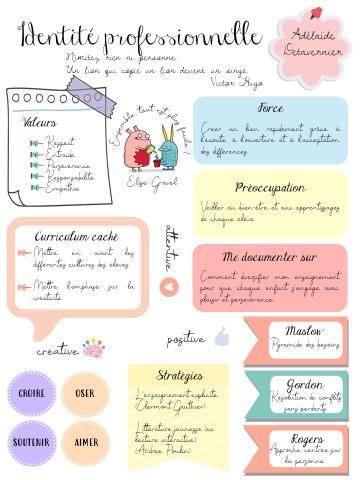 Identité professionnelle
Adélaïde
Detavernier
N'imitez rien ni personne.
Un lion qui copie un lion devient un singe.
Victor Hugo
Valeurs
Respect
Entraide
Persévérance
Responsabilité
Empathie
Ensemble, tout est plus facile!
Elise Gravel
Force
Créer un lien rapidement grâce à
l'écoute, à l'ouverture et à l'acceptation
des différences.
Préoccupation
Veiller au bien-être et aux apprentissages
de chaque élève.
Curriculum caché
Mettre en avant les
différentes cultures des élèves
Mettre l'emphase sur la
créativité
attentive
Me documenter sur
Comment diversifier mon enseignement
pour que chaque enfant s'engage avec
plaisir et persévérance.
créative
positive
Maslow
Pyramide des besoins
CROIRE
OSER
SOUTENIR
AIMER
Stratégies
L'enseignement explicite
(Clermont Gauthier)
Littérature jeunesse (ex:
lecture interactive)
(Andrée Poulin)
Gordon
Résolution de conflits
sans perdants
Rogers
Approche centrée sur
la personne